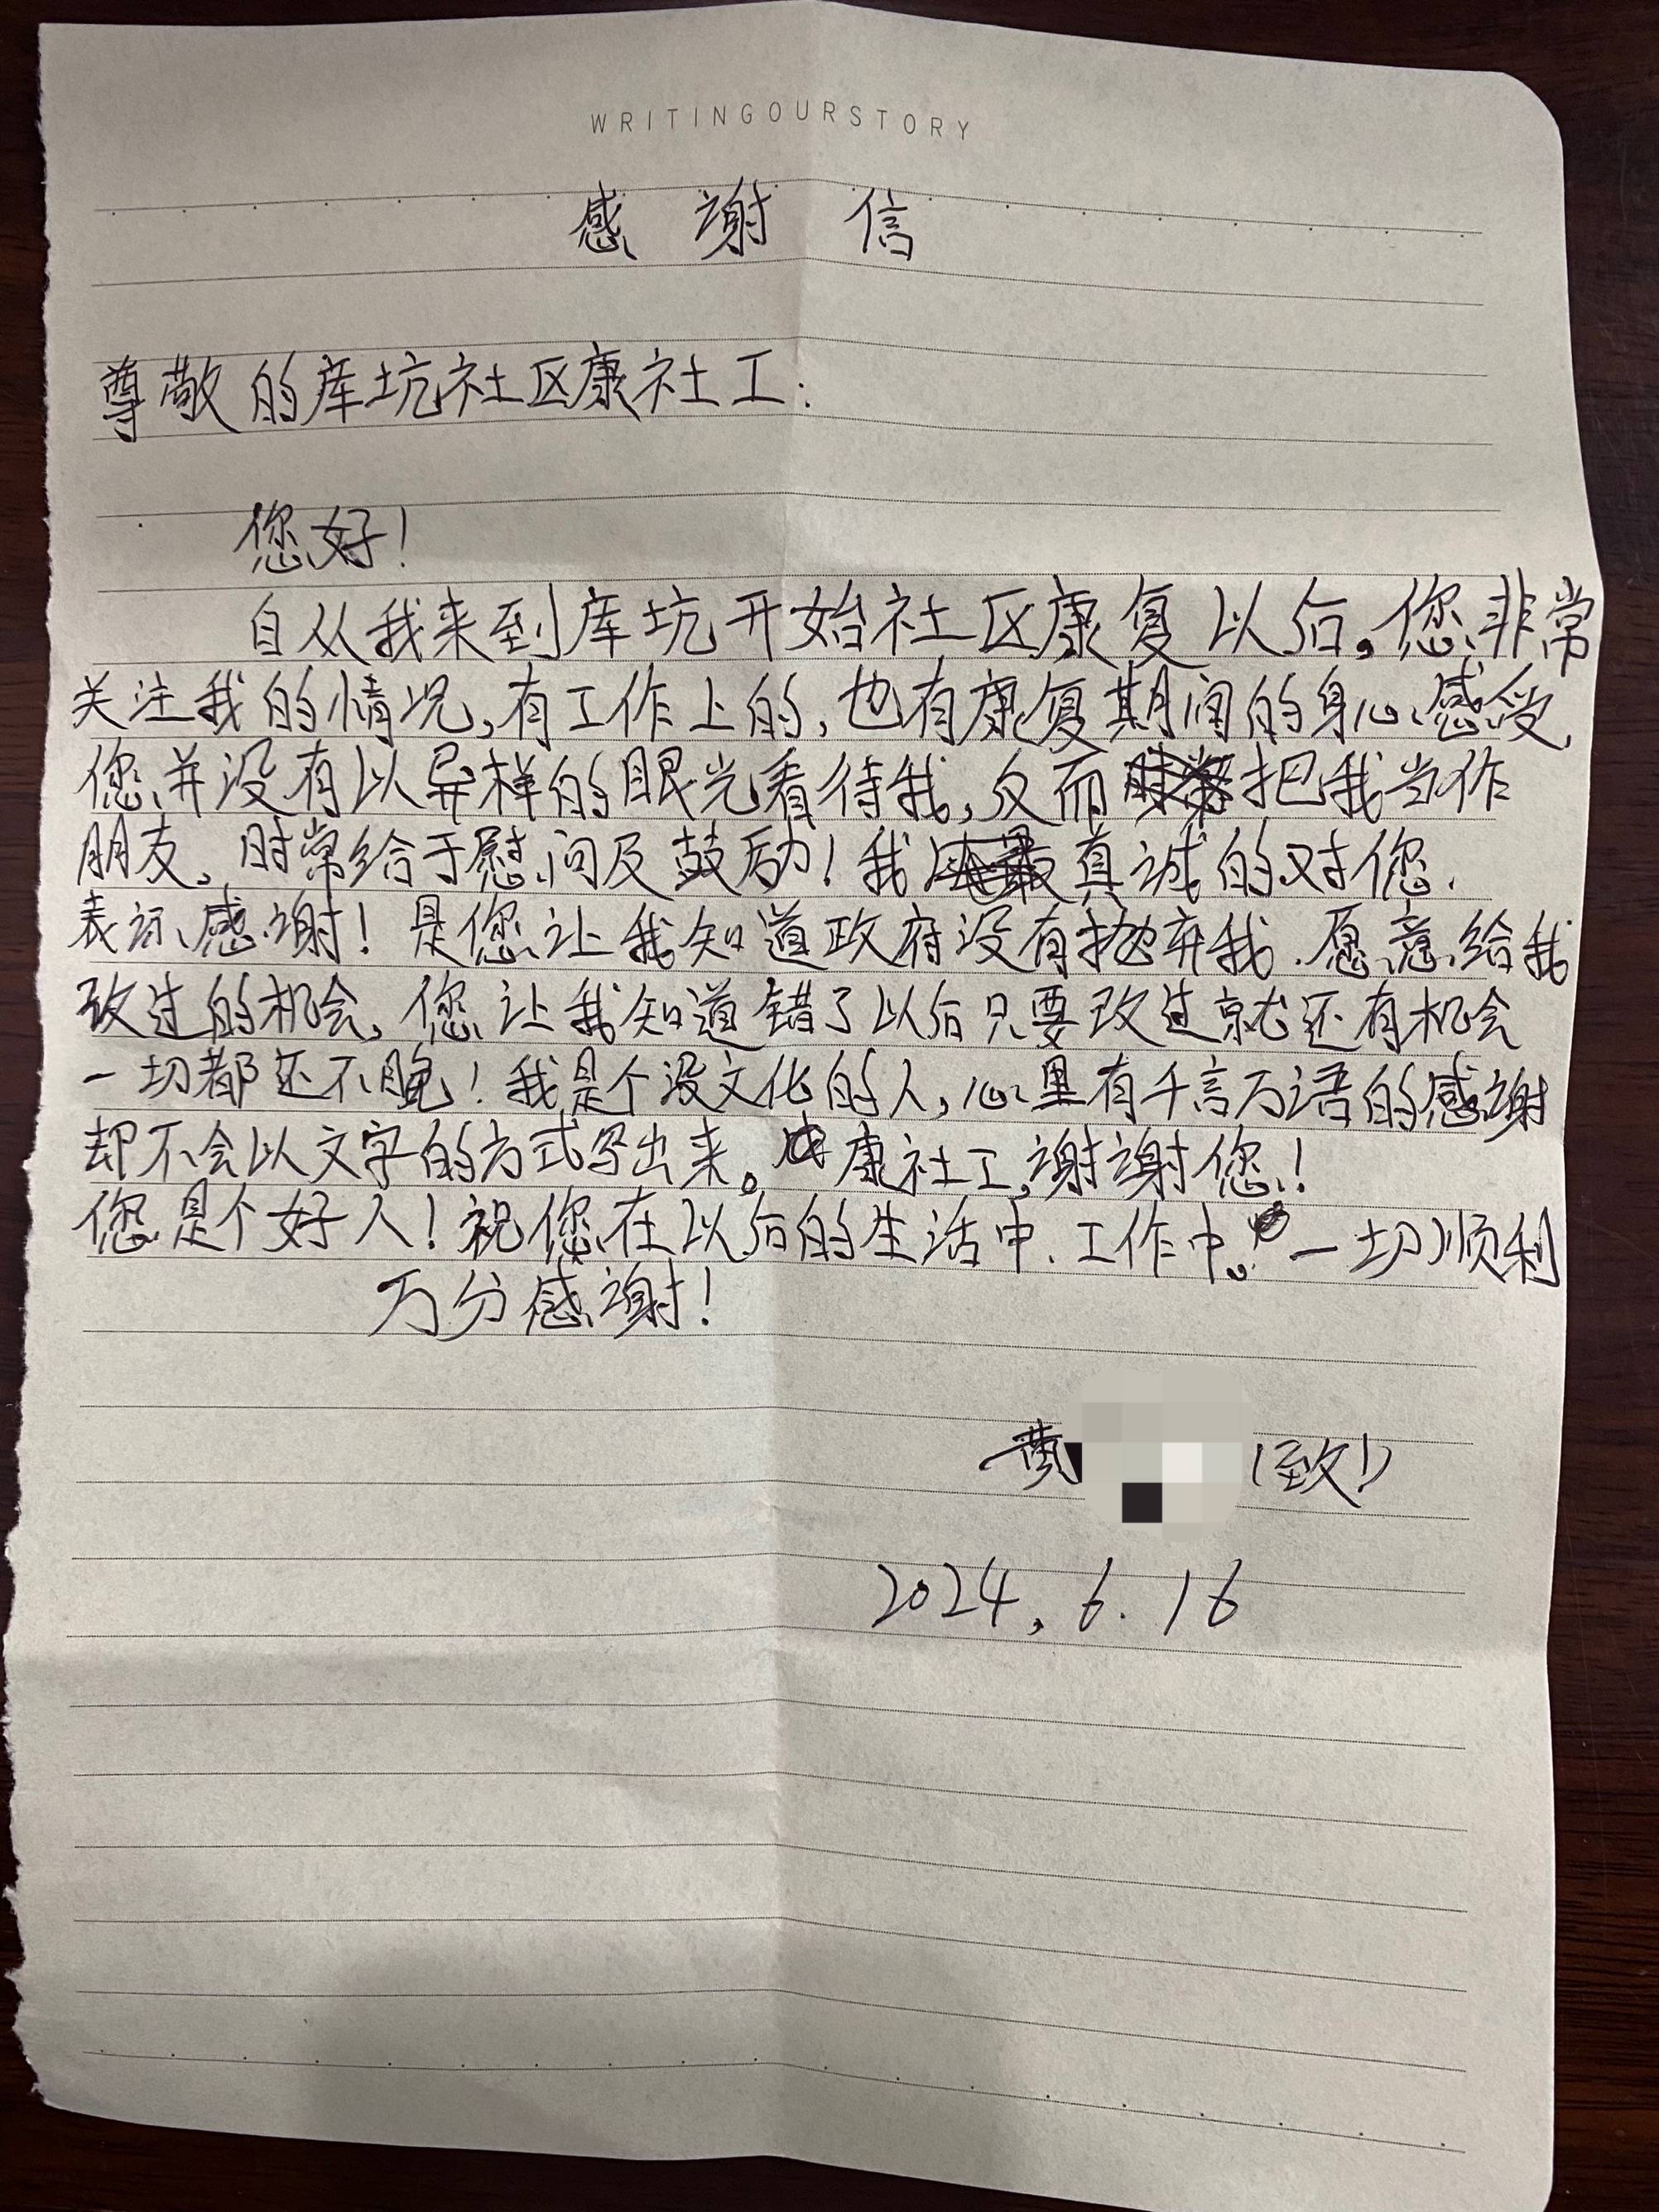 WRITINGOURSTORY
感谢信
尊敬的库坑社区康社工:
您好!
自从我来到库坑开始社区康复以后,您非常
关注我的情况,有工作上的,也有康复期间的身心感受,
您并没有以异样的眼光看待我,反而把我当作
朋友,时常给于慰问及鼓励!我真诚的对您
表示感谢!是您让我知道政府没有抛弃我.愿意给我
改过的机会,您让我知道错了以后只要改过就还有机会
一切都还不晚!我是个没文化的人,心里有千言万语的感谢
却不会以文字的方式写出来。康社工,谢谢您!
您是个好人!祝您在以后的生活中.工作中。一切顺利
万分感谢!
(致!)
2024.6.16